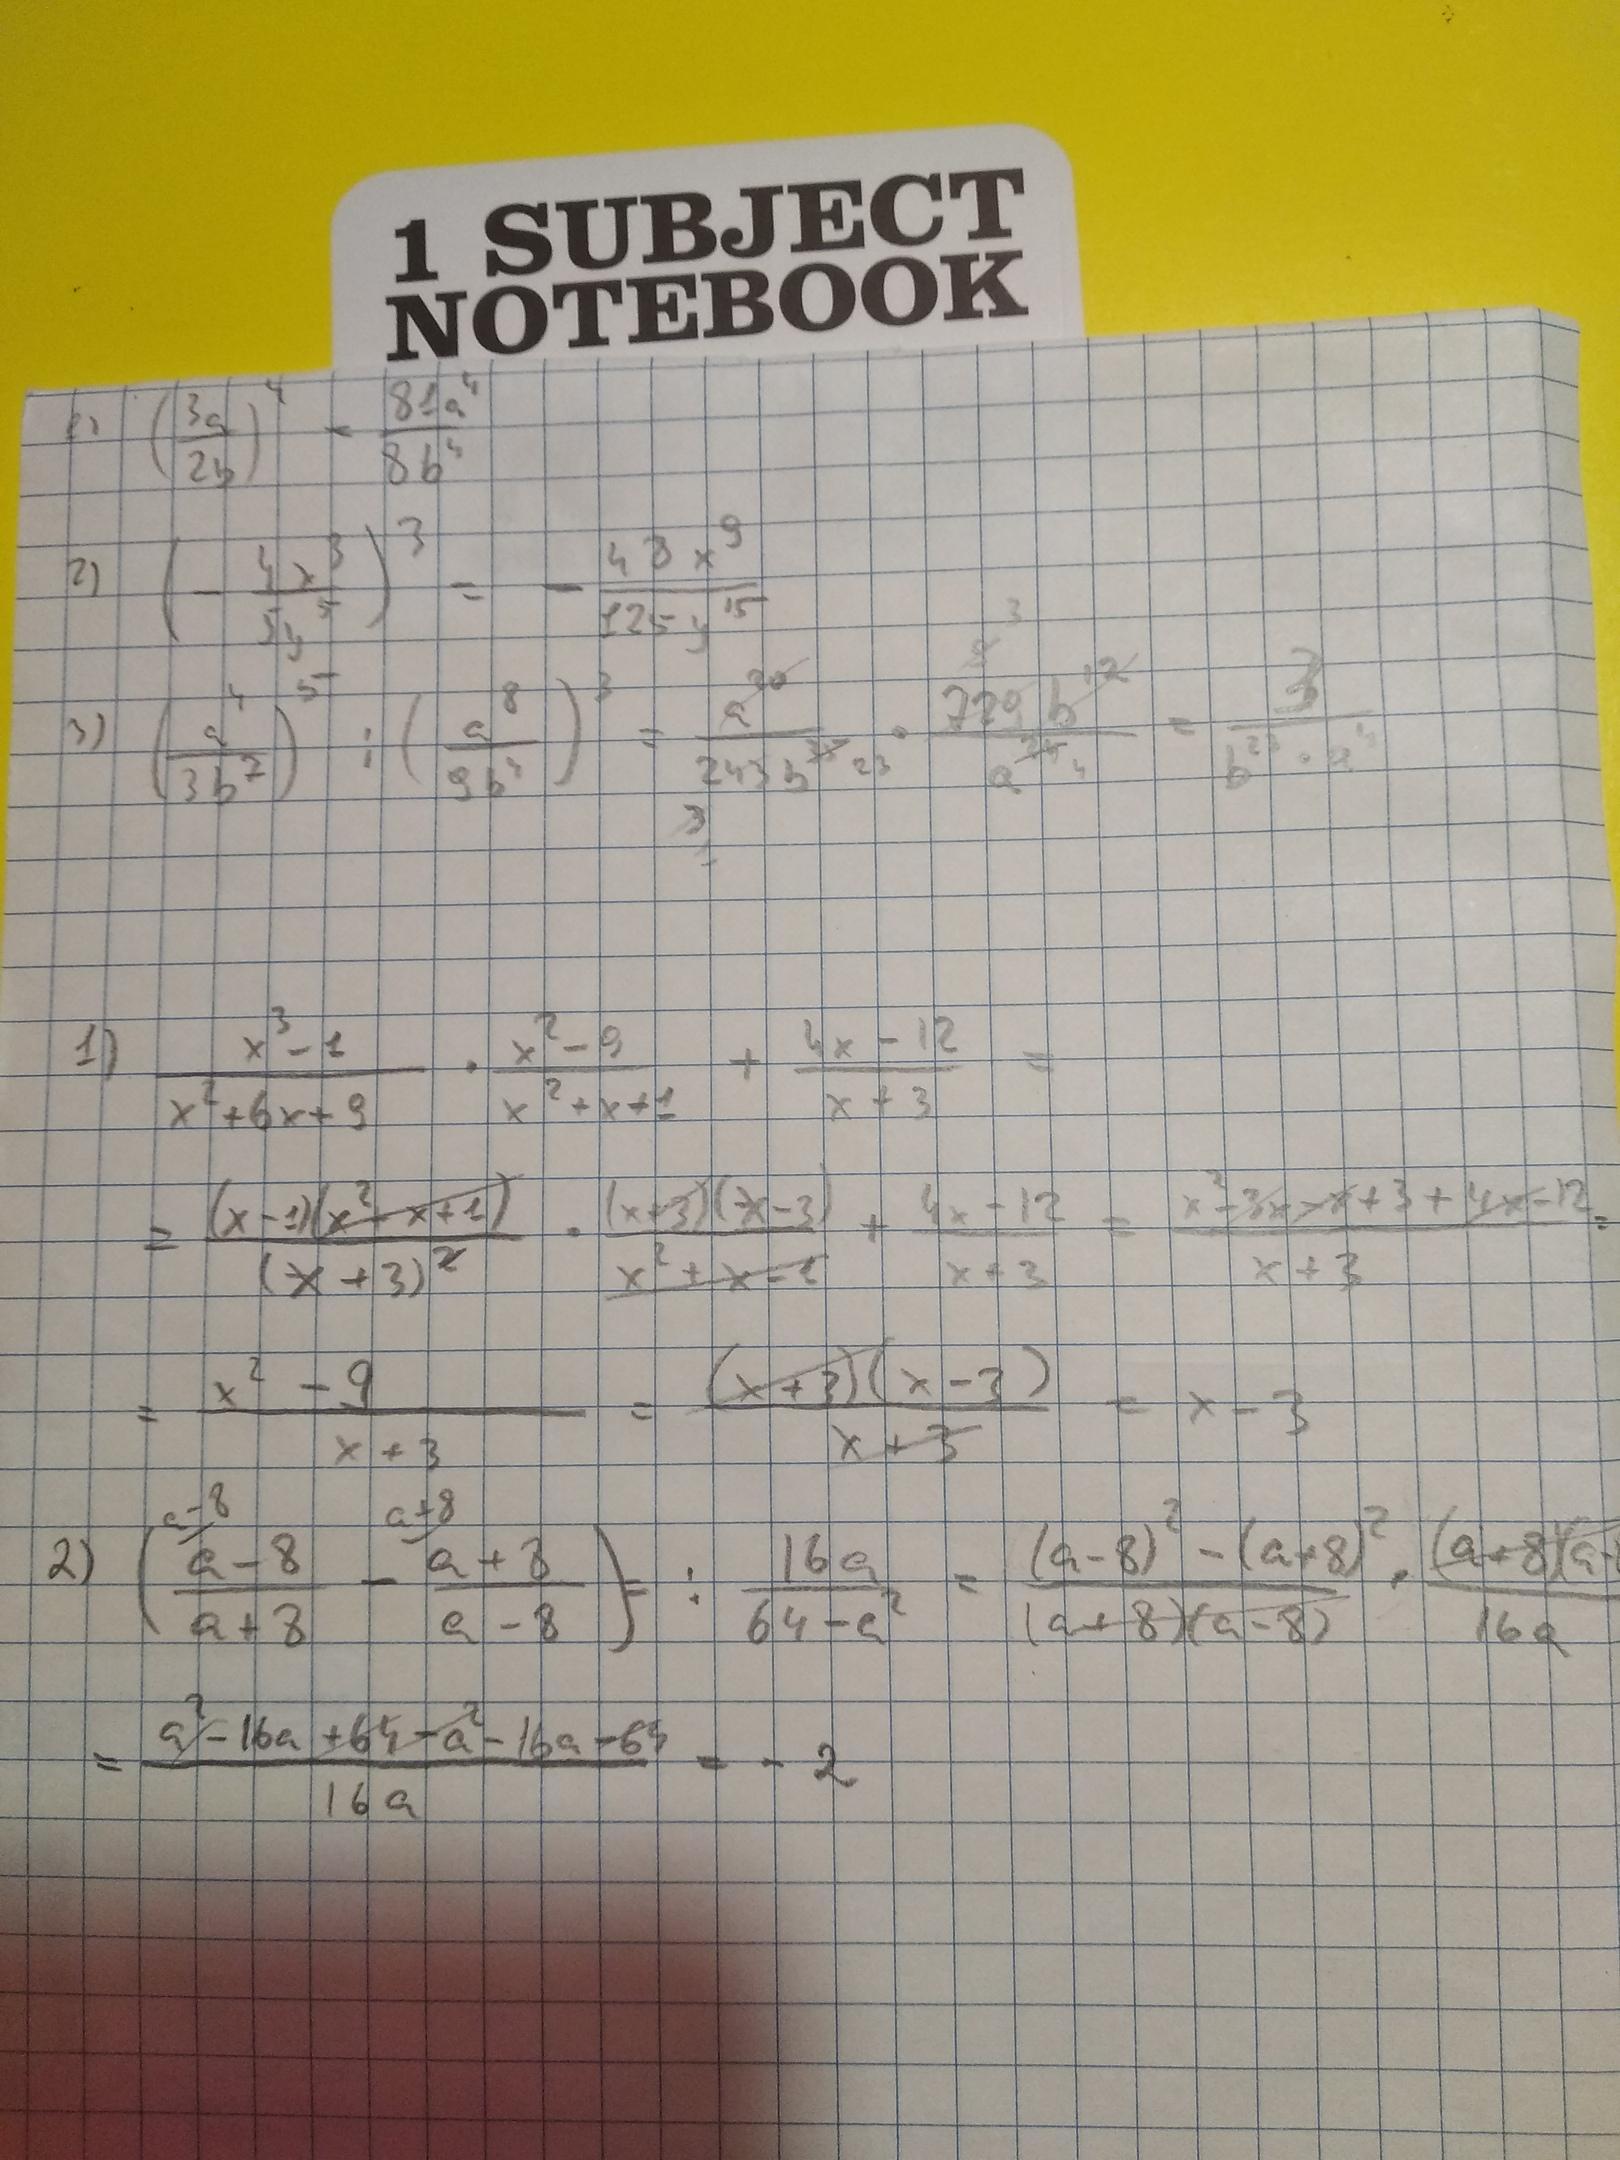 1 SUBJECT
NOTEBOOK
1) (3a/2b)^4 = 81a^4/8b^4
2) (- 4x^3/5y^5)^3 = - 48x^9/125y^15
3) (a^4/3b^7)^5 : (a^8/9b^4)^3 = a^20/243b^35 23 · 729b^12/a^24 4 = 3/b^23 · a^4
1) x^3-1/x^2+6x+9 · x^2-9/x^2+x+1 + 4x-12/x+3 =
= (x-1)(x^2+x+1)/(x+3)^2 · (x+3)(x-3)/x^2+x+1 + 4x-12/x+3 = x^2-3x-x+3+4x-12/x+3 =
= x^2-9/x+3 = (x+3)(x-3)/x+3 = x-3
a-8 a+8
2) (a-8/a+8 - a+8/a-8) : 16a/64-a^2 = (a-8)^2-(a+8)^2/(a+8)(a-8) · (a+8)(a-8/16a
= a^2-16a+64-a^2-16a-64/16a = -2